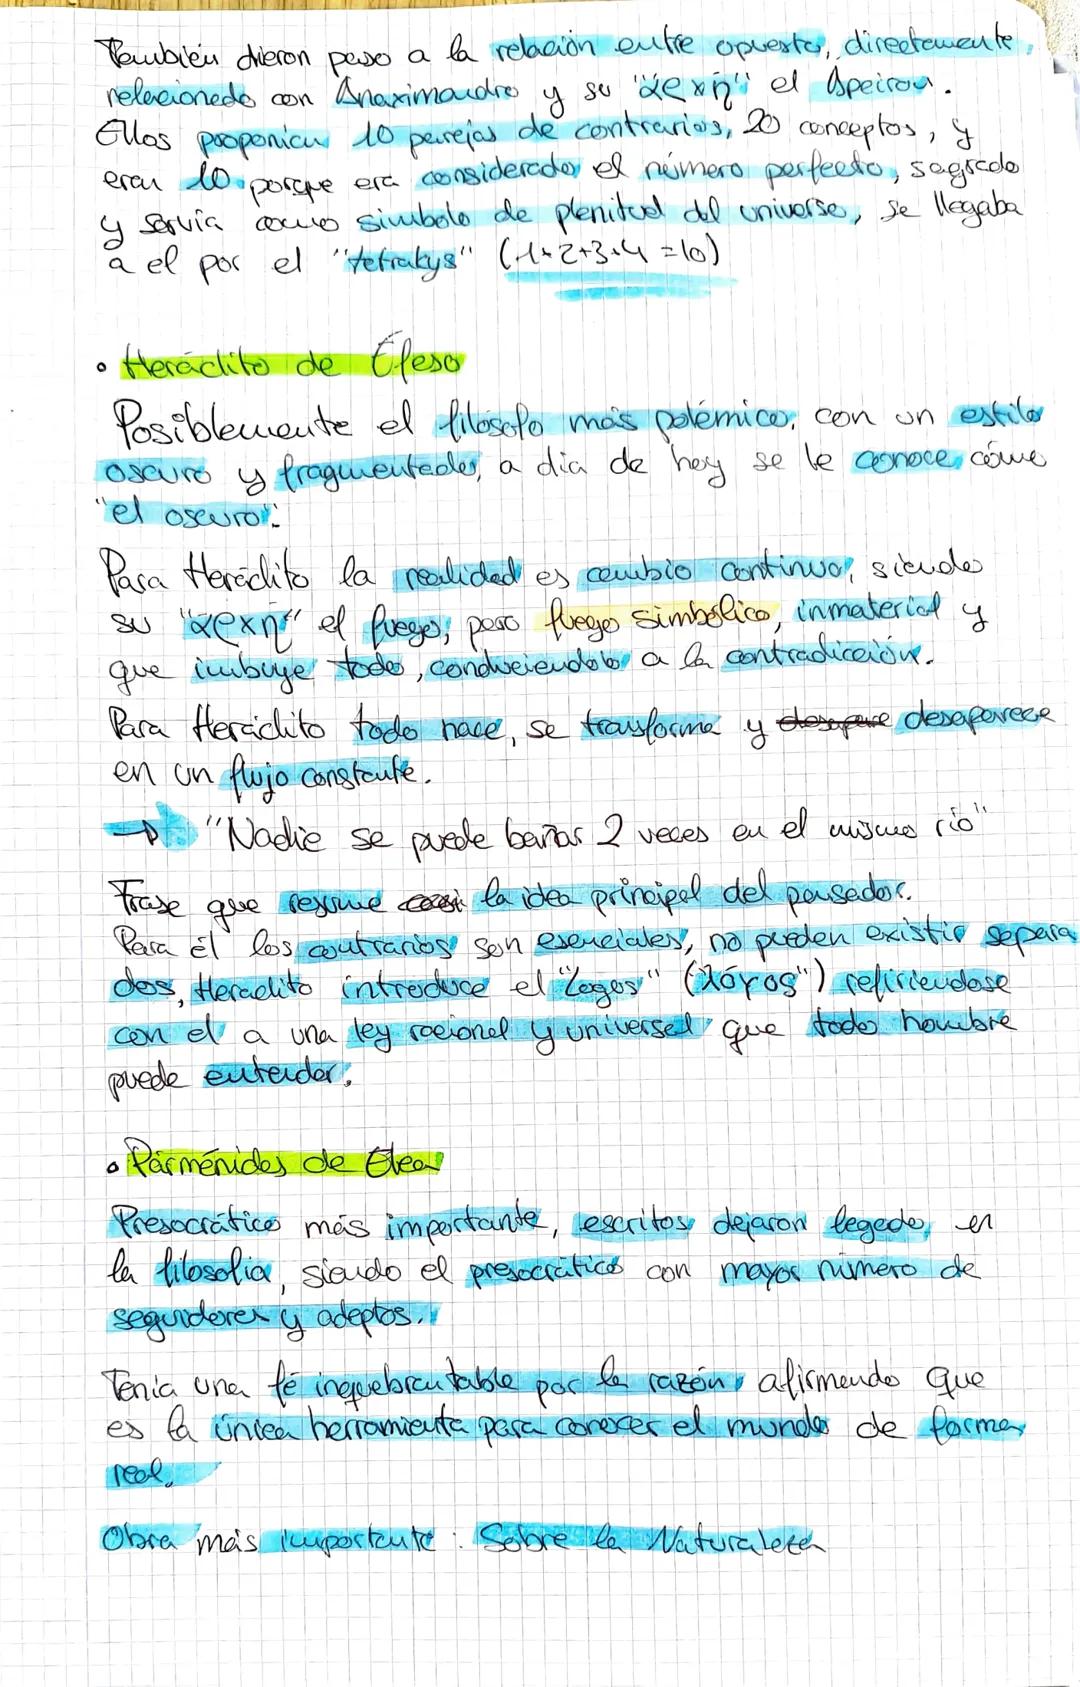 También dieron paso a la relación entre opuesto, directamente
relacionado con Anaximandro y su "αρχη" el Ápeiron.
Ellos proponían 10 parejas de contrarios, 20 conceptos, y
eran 10 porque era considerado el número perfecto, sagrado
y servía como símbolo de plenitud del universo, se llegaba
a el por el "tetrakys" (1+2+3+4=10)
• Heráclito de Éfeso
Posiblemente el filósofo más polémico, con un estilo
oscuro y fragmentado, a día de hoy se le conoce cómo
"el oscuro".
Para Heráclito la realidad es cambio continuo, siendo
su "αρχη" el fuego, pero fuego simbólico, inmaterial y
que imbuye todo, conduciendolo a la contradicción.
Para Heráclito todo nace, se transforma y desaparece
en un flujo constante.
→ "Nadie se puede bañar 2 veces en el mismo río"
Frase que resume la idea principal del pensador.
Para él los contrarios son esenciales, no pueden existir separa
dos, Heraclito introduce el "Logos" (λόγος") refiriendose
con el a una ley racional y universal que todo hombre
puede entender.
• Parménides de Elea
Presocrático más importante, escritos dejaron legado en
la filosofia, siendo el presocrático con mayor número de
seguidores y adeptos.
Tenía una fé inquebrantable por la razón, afirmando que
es la única herramienta para conocer el mundo de forma
real.
Obra más importante: Sobre la Naturaleza